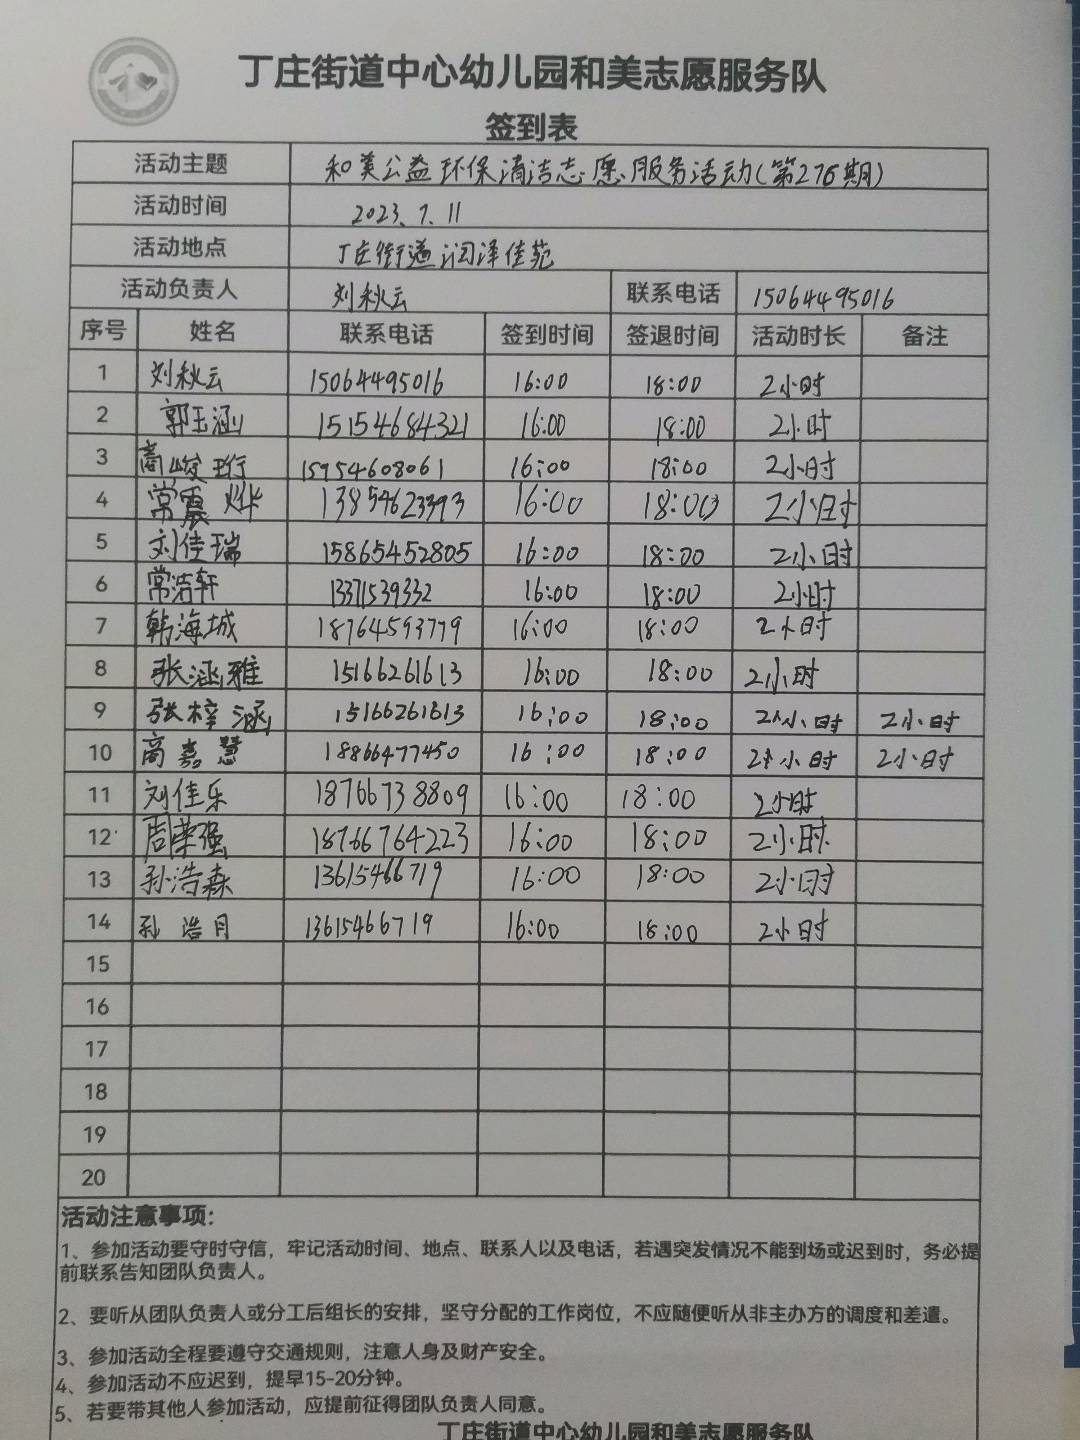 丁庄街道中心幼儿园和美志愿服务队
签到表
活动主题 和美公益环保清洁志愿服务活动(第276期)
活动时间 2023.7.11
活动地点 丁庄街道润泽佳苑
活动负责人 刘秋云 联系电话 15064495016
序号 姓名 联系电话 签到时间 签退时间 活动时长 备注
1 刘秋云 15064495016 16:00 18:00 2小时
2 郭玉涵 15154684321 16:00 18:00 2小时
3 高峻珩 15954608061 16:00 18:00 2小时
4 常震烨 13854623393 16:00 18:00 2小时
5 刘佳瑞 15865452805 16:00 18:00 2小时
6 常洁轩 13371539332 16:00 18:00 2小时
7 韩海城 18764593779 16:00 18:00 2小时
8 张涵雅 15166261613 16:00 18:00 2小时
9 张梓涵 15166261613 16:00 18:00 2小时 2小时
10 高嘉慧 18866477450 16:00 18:00 2小时 2小时
11 刘佳乐 18766738809 16:00 18:00 2小时
12 周荣强 18766764223 16:00 18:00 2小时
13 孙浩森 13615466719 16:00 18:00 2小时
14 孙浩月 13615466719 16:00 18:00 2小时
15
16
17
18
19
20
活动注意事项：
1、参加活动要守时守信，牢记活动时间、地点、联系人以及电话，若遇突发情况不能到场或迟到时，务必提
前联系告知团队负责人。
2、要听从团队负责人或分工后组长的安排，坚守分配的工作岗位，不应随便听从非主办方的调度和差遣。
3、参加活动全程要遵守交通规则，注意人身及财产安全。
4、参加活动不应迟到，提早15-20分钟。
5、若要带其他人参加活动，应提前征得团队负责人同意。
丁庄街道中心幼儿园和美志愿服务队